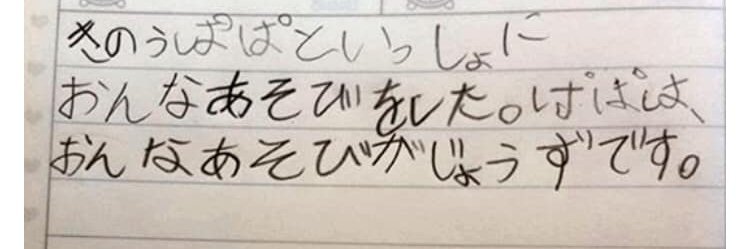 きのうぱぱといっしょに
おんなあそびをした。ぱぱは、
おんなあそびがじょうずです。